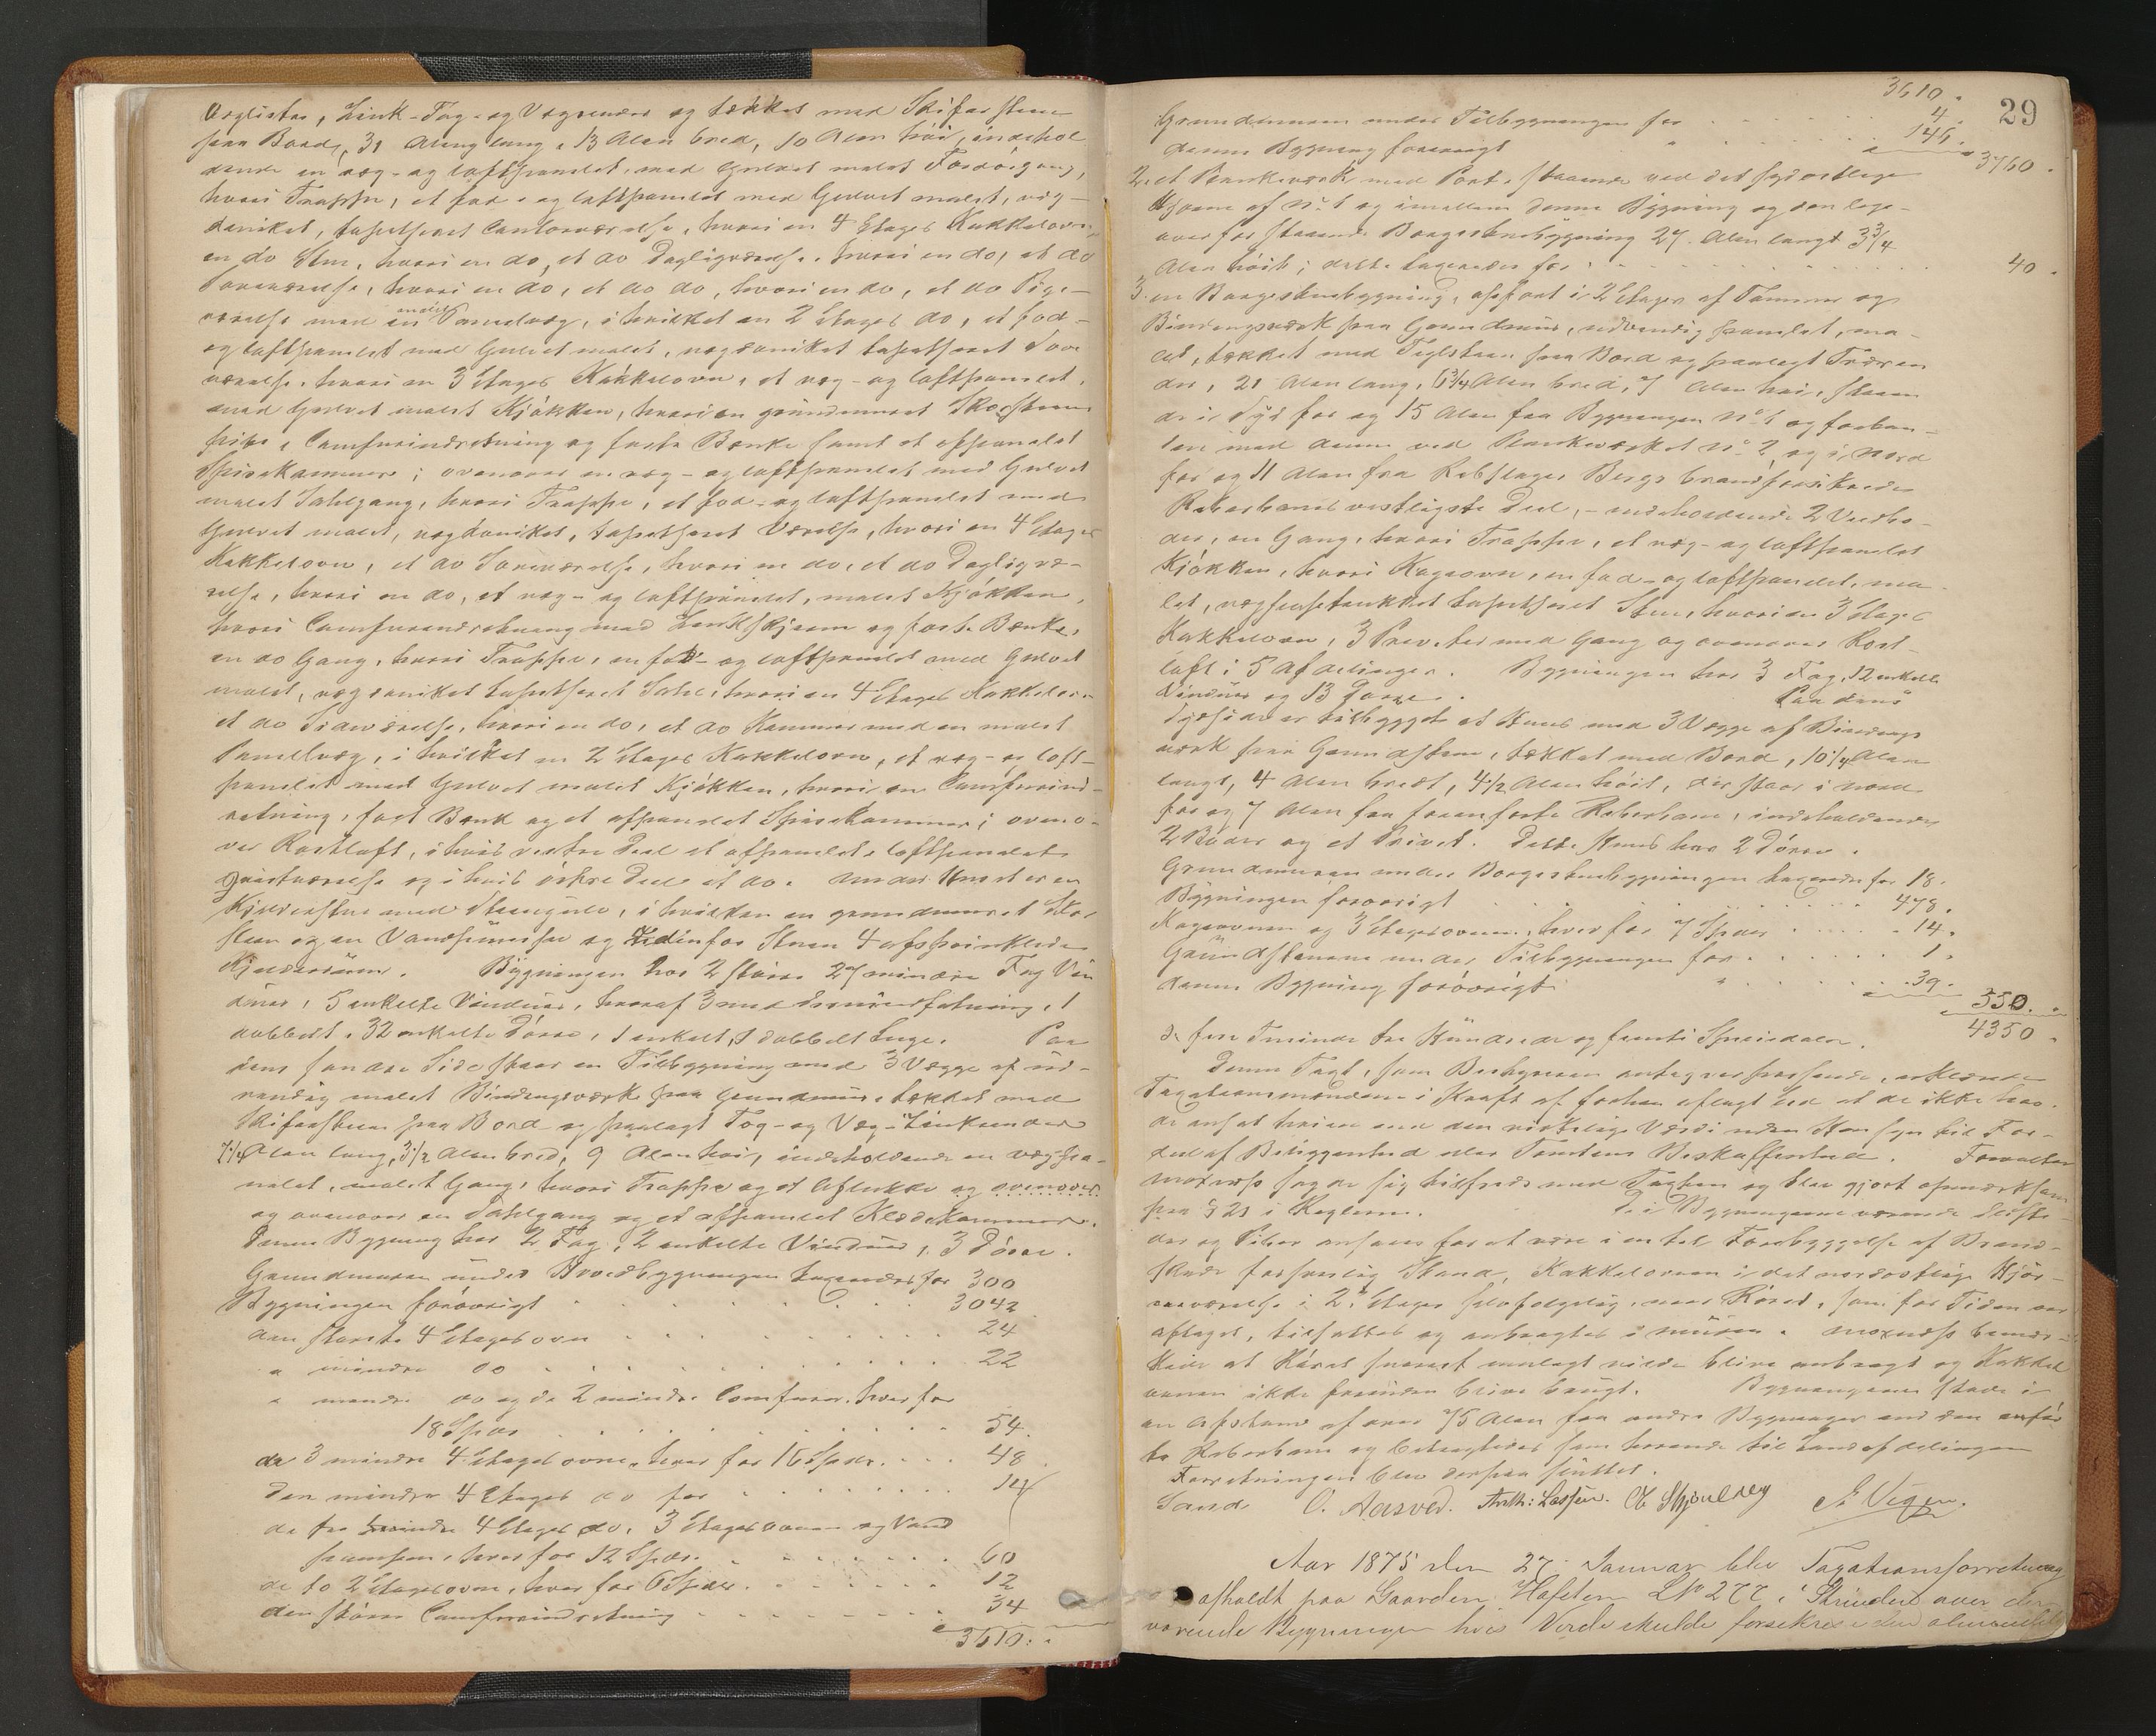 Verglister, Zink-Tag- og Vægrender og tækket med Skifersteen
paa Bord, 31 Alen lang, 13 Alen bred, 10 Alen høi, indehol
dende en væg- og loftpanelet, med Gulvet malet Fordørgang,
hvori Trappe, et fod- og loftpanelet med Gulvet malet, væg-
daniket, tapetseret Contorværelse, hvori en 4 Etages Kakkelovn,
en do Stue, hvori en do, et do Dagligværelse, hvori en do, et do
Soveværelse, hvori en do, et do do, hvori en do, et do Pige-
værelse med en malet Panelvæg, i hvilket en 2 Etages do, et fod-
og loftpanelet med Gulvet malet, vægdaniket tapetseret Sove
værelse, hvori en 3 Etages Kakkelovn, et væg- og loftpanelet,
med Gulvet malet Kjøkken, hvori en grundmuret Skorsteens
pibe, Comfurindretning og faste Bænke samt et afpanelet
Spisekammer; ovenover en væg- og loftpanelet med Gulvet
malet Sahlgang, hvori Trappe, et fod- og loftpanelet med
Gulvet malet, vægdaniket, tapetseret Værelse, hvori en 4 Etages
Kakkelovn, et do Soveværelse, hvori en do, et do Dagligvæ-
relse, hvori en do, et væg- og loftpanelet, malet Kjøkken,
hvori Comfurindretning med Zinkskjerm og faste Bænke,
en do Gang, hvori Trappe, en fod- og loftpanelet med Gulvet
malet, vægdaniket tapetseret Sahl, hvori en 4 Etages Kakkelovn
et do Soveværelse, hvori en do, et do Kammer med en malet
Panelvæg, i hvilket en 2 Etages Kakkelovn, et væg- og loft-
panelet med Gulvet malet Kjøkken, hvori en Comfurind-
retning, fast Bænk og et afpanelet Spisekammer; oveno-
ver Rostloft, i hvis vestre Deel et afpanelet loftpanelet
Qvistværelse og i hvis østre Deel et do. Under Huset er en
Kjelderstue med Steengulv, i hvilken en grundmuret Skor
steen og en Vandpumpe og udenfor Stuen 4 afsprinklede
Kjelderrum. Bygningen har 2 større 27 mindre Fag Vin
duer, 5 enkelte Vinduer, hvoraf 3 med
dobbelt, 32 enkelte Dørre, 1 enkelt, 1 dobbelt Luge. Paa
dens søndre Side staar en Tilbygning med 3 Vægge af ud-
vendig malet Bindingsværk paa Grundmuur, tækket med
Skifersteen paa Bord og paalagt Tag- og Væg-Zinkrender
7¼ Alen lang, 3½ Alen bred, 9 Alen høi, indeholdende en vægpa-
nelet, malet Gang, hvori Trappe og et Aflukke og ovenover
og ovenover en Sahlgang og et afpanelet Klædekammer.
Denne Bygning har 2 Fag, 2 enkelte Vinduer, 3 Dørre.
Grundmuren under Hovedbygningen taxeredes for 300
Bygningen forøvrigt 3042
den største 4 Etages ovn 24
" mindre do 22
" mindre do og de 2 mindre Comfurer, hver for
18 Spdr 54.
de 3 mindre 4 Etages ovne, hver for 16 Spdr. 48
den mindre 4 Etages do for 14
de fra mindre 4 Etages do, 3 Etagesovnen og Vand
pumpen, hver for 12 Spdr. 60
de to 2 Etagesovne, hver for 6 Spdr. 12
den større Comfurindretning 34
3610.
29
3610.
Grundmuren under Tilbygningen for 4.
denne Bygning forøvrigt " 146.
3760.
2, et Plankeværk med Port, staaende ved det sydøstlige
Hjørne af No 1 og imellem denne Bygning og den lige-
overfor staaende Borgestuebygning 27 Alen langt 3¾
Alen høit; dette taxeredes for 40.
3. en Borgestuebygning, opført i 2 Etager af Tømmer og
Bindingsværk paa Grundmuur, udvendig panelet, ma-
let, tækket med Teglsteen paa Bord og paalagt Træren
der, 21 Alen lang, 6¾ Alen bred, 7 Alen høi, staaen
de i Syd for og 15 Alen fra Bygningen No 1 og forbun-
den med denne ved Plankeværket No 2 og i Nord
for og 11 Alen fra Rebslager Bergs brandforsikrede
Reberbane vestligste Deel, - indeholdende 2 Vedbo-
der, en Gang, hvori Trappe, et væg- og loftpanelet
Kjøkken, hvori Kogeovn, en fod- og loftpanelet, ma-
let, tapetseret Stue, hvori en 3 Etages
Kakkelovn, 3 Priveter med Gang og ovenover Rost-
loft i 5 Afdelinger. Bygningen har 3 Fag, 12 enkelte
Vinduer og 13 Dørre. Paa dens
Sydside er tilbygget et Huus med 3 Vægge af Bindings
værk paa Grundsteen, tækket med Bord, 10¼ Alen
langt, 4 Alen bredt, 4½ Alen høit, der staar i Nord
for og 7 Alen fra foranførte Reberbane, indeholdende
2 Boder og et Privet. Dette Huus har 2 Dørre.
Grundmuren under Borgestuebygningen taxeredes for 18.
Bygningen forøvrigt 478.
Kogeovnen og 3 Etagesovnen, hver for 7 Spdr 14.
Grundstenene under Tilbygningen for 1.
denne Bygning forøvrigt " 39.
550.
4350.
De fire Tusinde tre Hundrede og femti Speciedaler.
Denne Taxt, som Bestyreren antog var passende, erklærede
Taxationsmændene i Kraft af forhen aflagt Eed at de ikke hav-
de ansat høiere end den virkelige Værdi uden Hensyn til For-
deel af Beliggenhed eller Tomtens Beskaffenhed. Forvalter
Moxness sagde sig tilfreds med Taxten og blev gjort opmærksom
paa § 21 i Reglerne. De i Bygningerne værende Ildste-
der og Piber ansaaes for at være i en til Forebyggelse af Brand-
skade forsvarlig Stand, Kakkelovnen i det nordøstlige Hjør-
neværelse i 2. Etage selvfølgelig, naar Røret, som for Tiden var
aftaget, tilsattes og anbragtes i Muren. Moxness bemær-
kede at Røret snarest muligt vilde blive anbragt og Kakkel
ovnen ikke forinden blive brugt. Bygningerne stode i
en Afstand af over 75 Alen fra andre Bygninger end den anfør-
te Reberbane og betragtedes som hørende til Landafdelingen
Forretningen blev derpaa sluttet.
Sand O. Aasved. Anth: Lassen. Skjoulsey Vigen.
Aar 1875 den 27 Januar blev Taxationsforretning
afholdt paa Gaarden Hofsten LNo 277 i Strinden over der
værende Bygninger hvis Værdi skulde forsikres i den almindelige